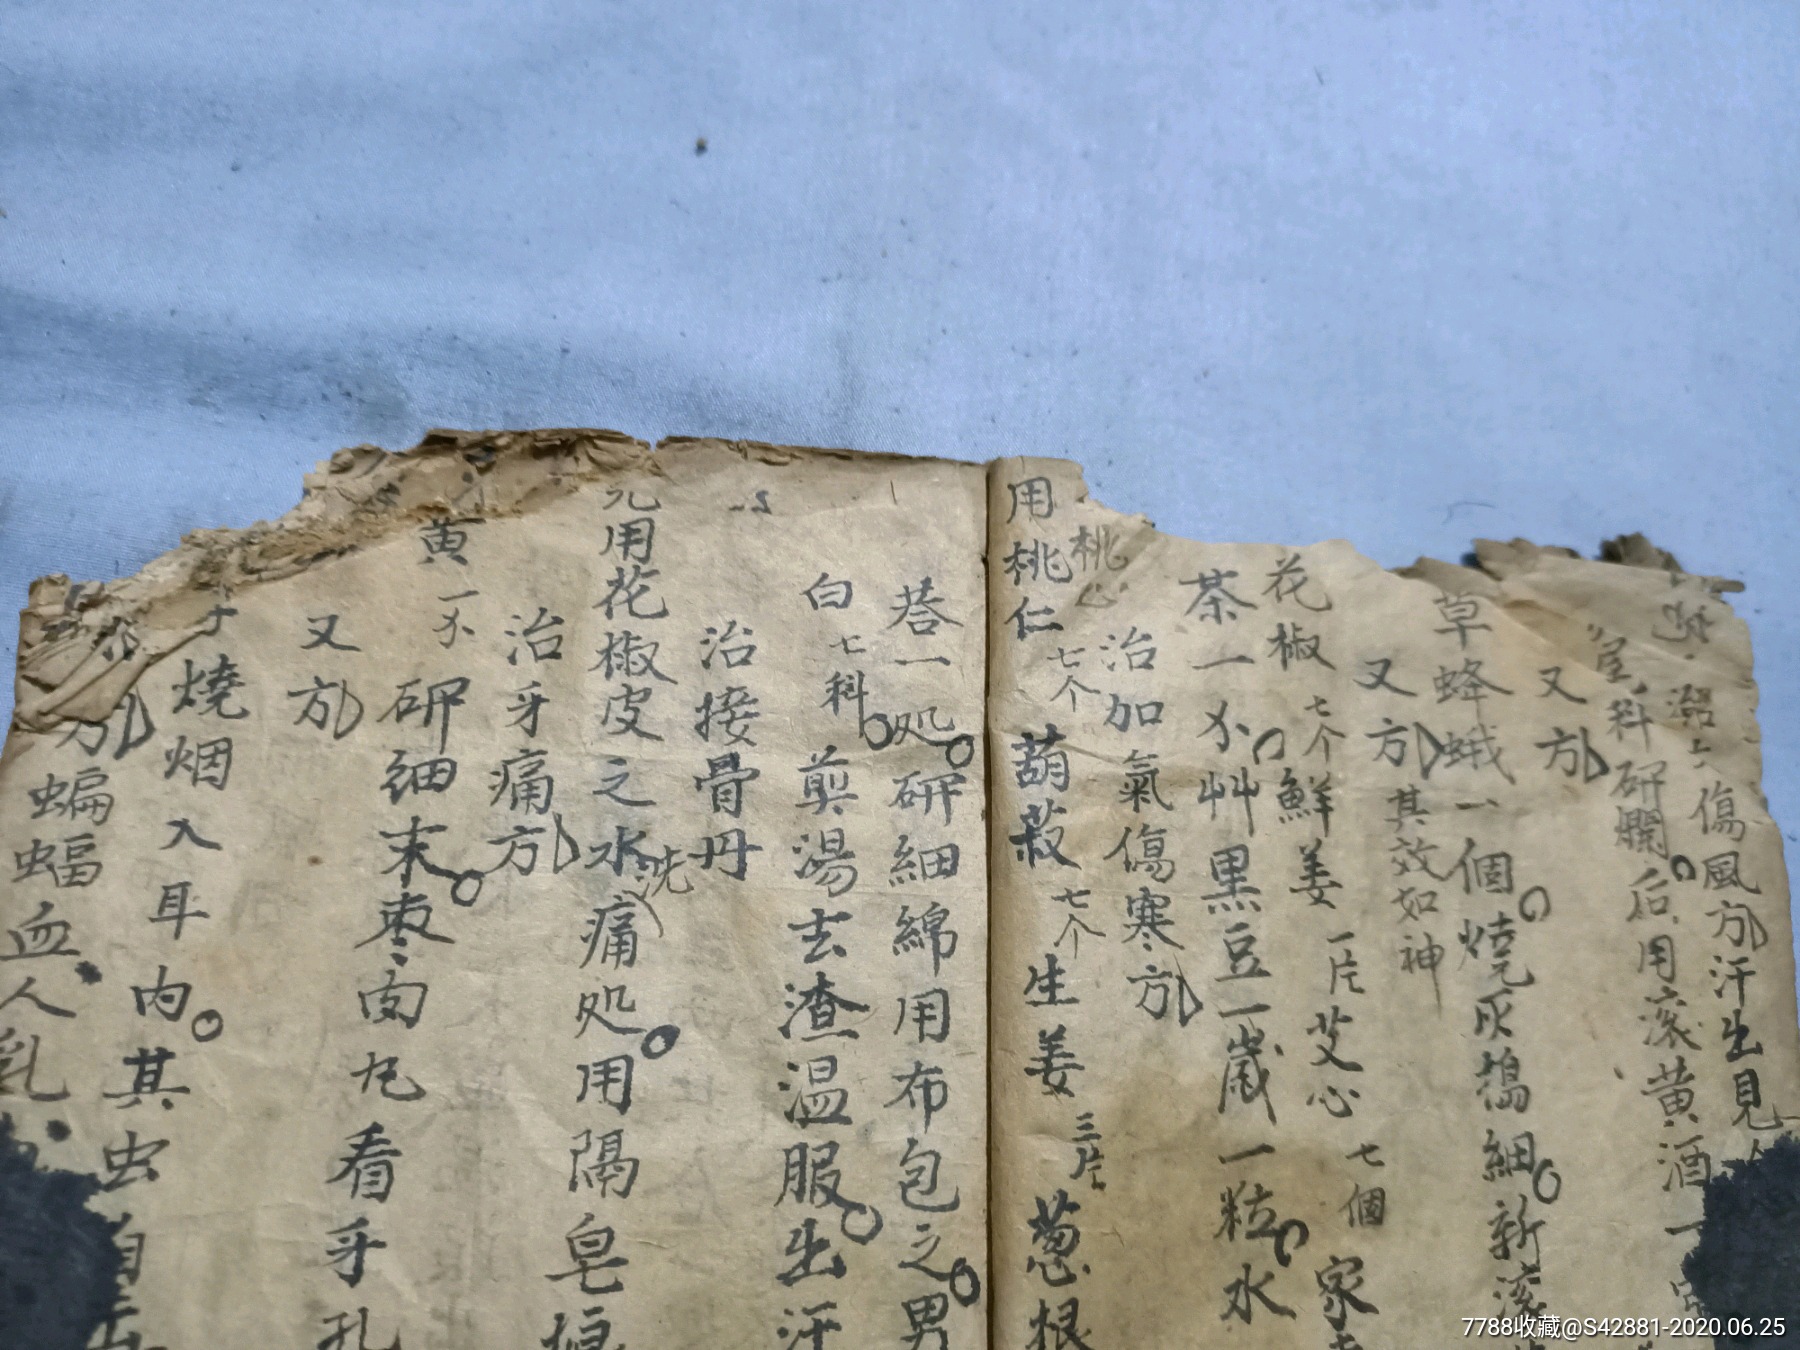 傷風方汗出見
科研爛后用滚黄酒一
又方
草蜂蛾一個燒灰搗細新滚
又方其效如神
花椒七个鮮姜一片艾心七個家
茶一艸黑豆一歲一粒水
治加氣傷寒方
桃心
用桃仁七个葫菽七个生姜三片葱根
一处研細綿用布包之男
白七科煎湯去渣温服出汗
治接骨丹
用花椒皮之水洗痛处用隔皂
治牙痛方
黄一研细末枣肉丸看牙孔
又方
燒烟入耳内其虫自
方蝙蝠血人乳
7788收藏@S42881-2020.06.25